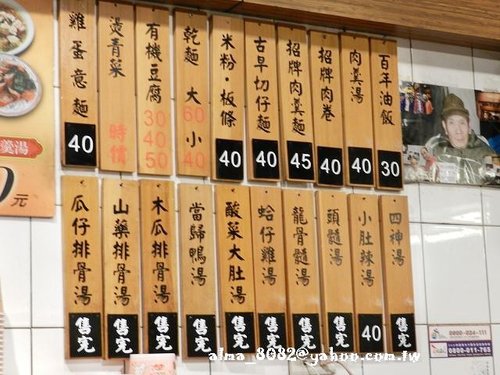 百年油飯 30
肉羹湯 40
招牌肉卷 40
招牌肉羹麵 45
古早切仔麵 40
米粉·板條 40
乾麵 大60 小40
有機豆腐 30 40 50
燙青菜 時價
雞蛋意麵 40
四神湯 售完
小肚辣湯 40
頭髓湯 售完
龍骨髓湯 售完
蛤仔雞湯 售完
酸菜大肚湯 售完
當歸鴨湯 售完
木瓜排骨湯 售完
山藥排骨湯 售完
瓜仔排骨湯 售完
羹湯
0元
0800-024-111
0800-011-765
alma_8082@yahoo.com.tw